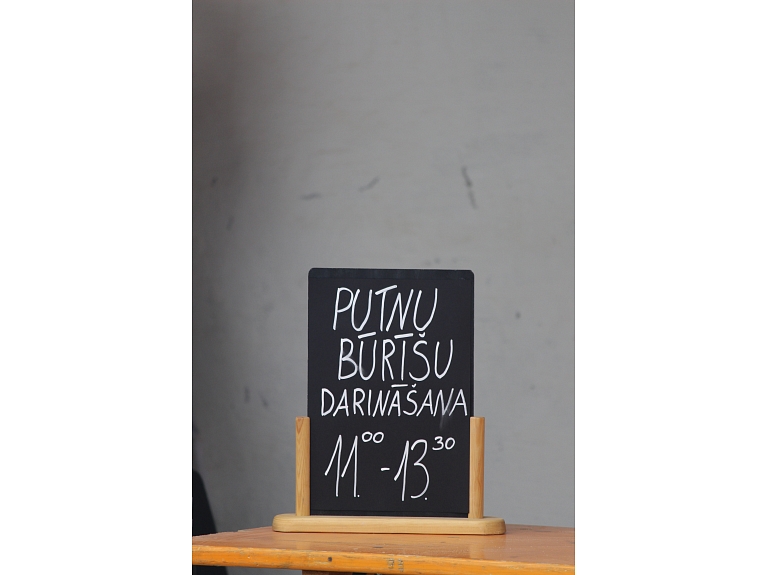 PUTNU
BŪRĪŠU
DARINĀŠANA
11.⁰⁰ - 13.³⁰